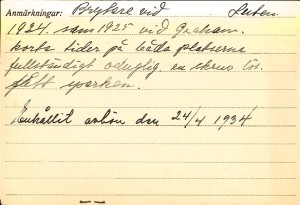 Anmärkningar: Brykare vid Luten
1924 sam 1925 vid Graham.
korta tider på båda platserna
fullständigt oduglig en skruv lös.
fått sparken.
Enhållit avbön den 24/4 1934